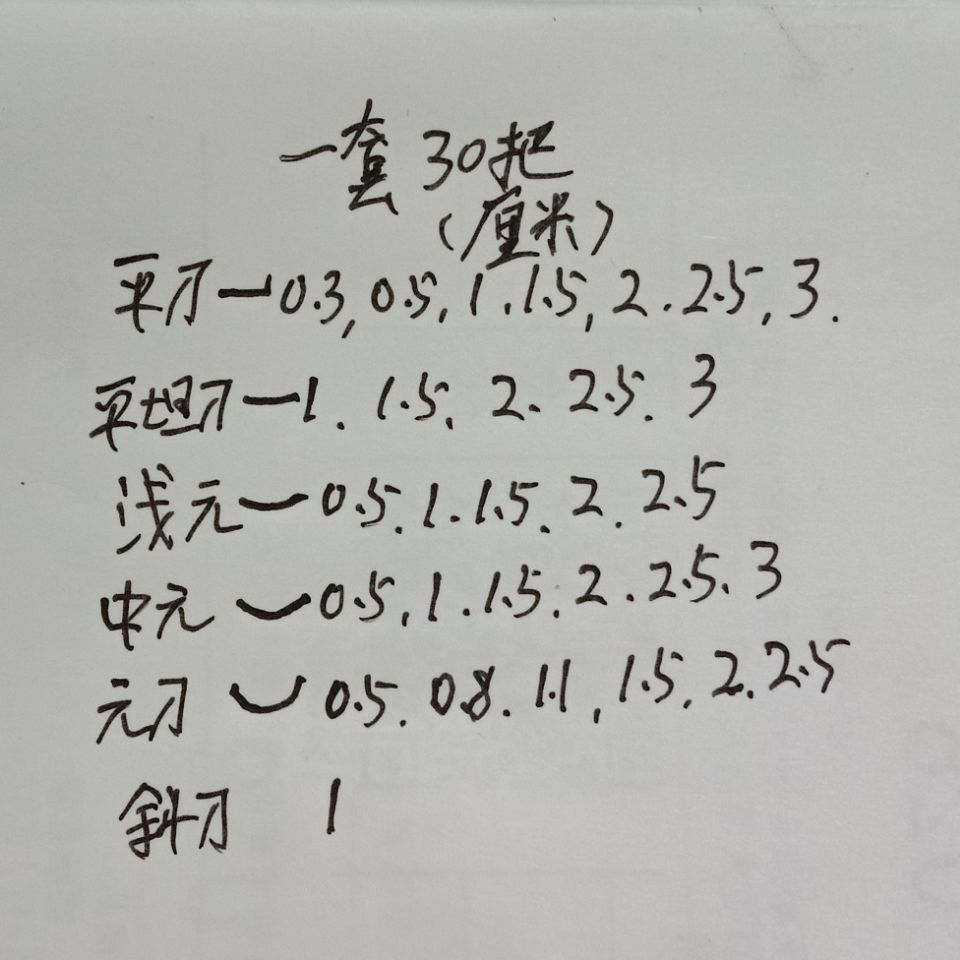 一套30把
(厘米)
平刀一0.3,0.5,1.1.5,2.2.5,3.
平坦刀一1.1.5.2.2.5.3
浅元⌣0.5.1.1.5.2.2.5
中元⌣0.5,1.1.5.2.2.5.3
元刀⌣0.5.0.8.1.1,1.5.2.2.5
斜刀 1